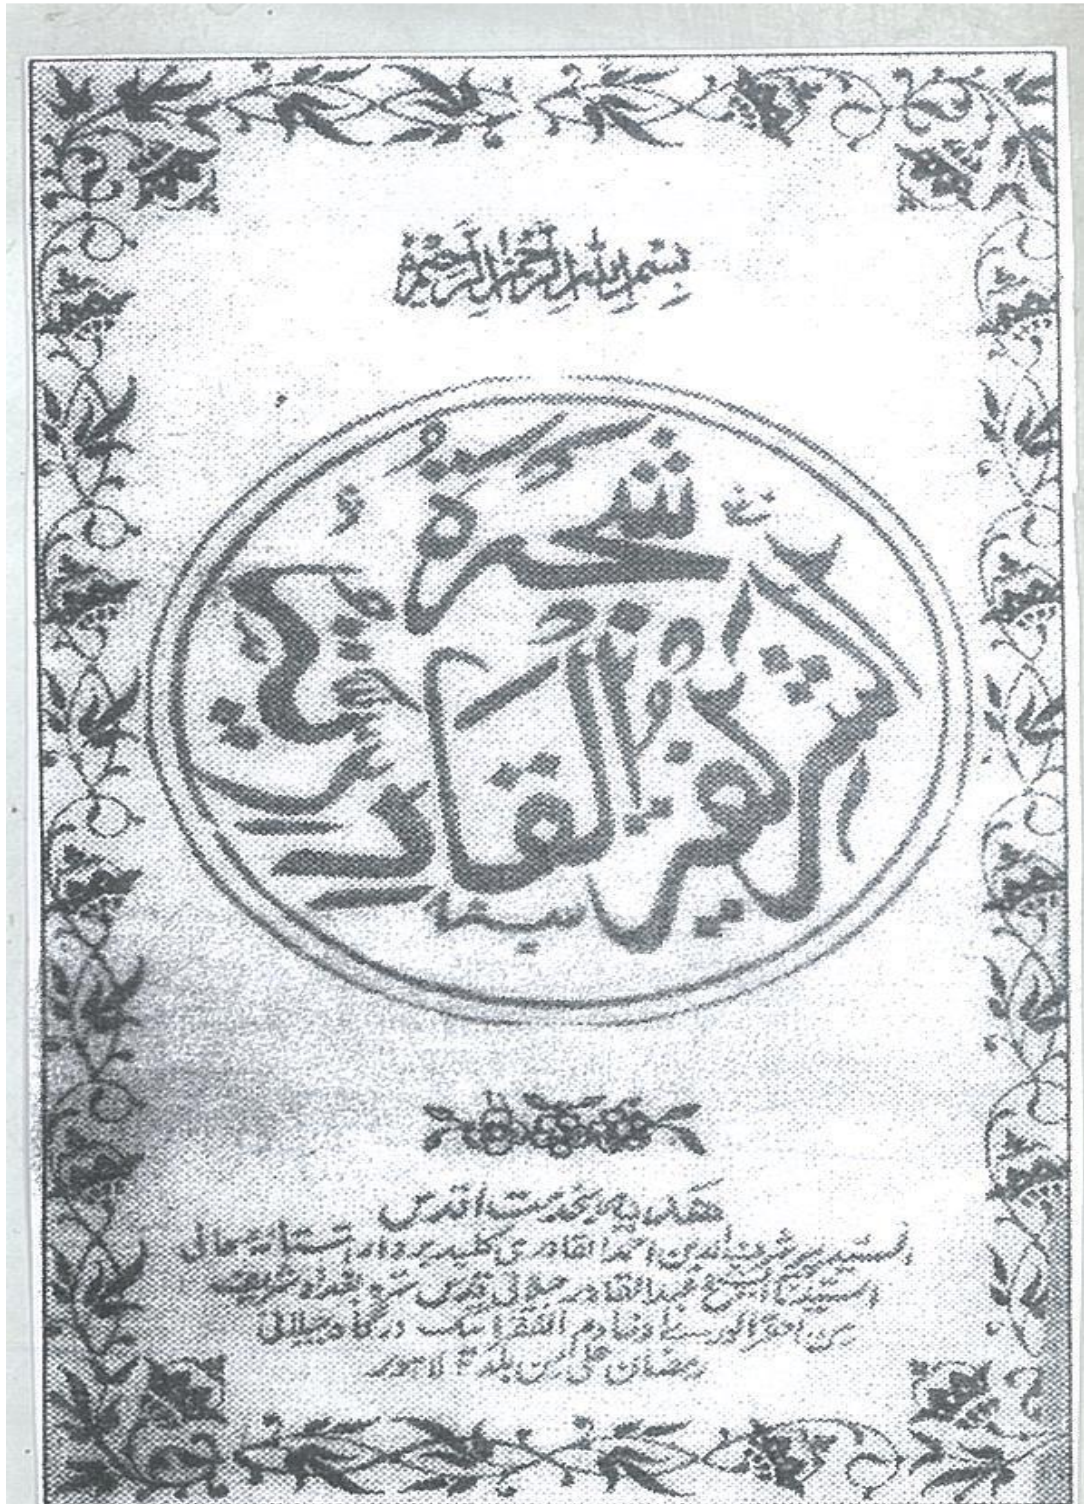 بسم الله الرحمن الرحيم
شجرة
الشريفة القادرية
هديه بخدمت اقدس
السيد پیر شريف الدين احمد القادري كليد بردار آستانة عالی
السيدنا الشيخ عبد القادر جيلاني قدس سره بغداد شريف
من احقر الورى وخادم الفقرا سگ درگاه جيلاني
رمضان علی من بلدة لاهور